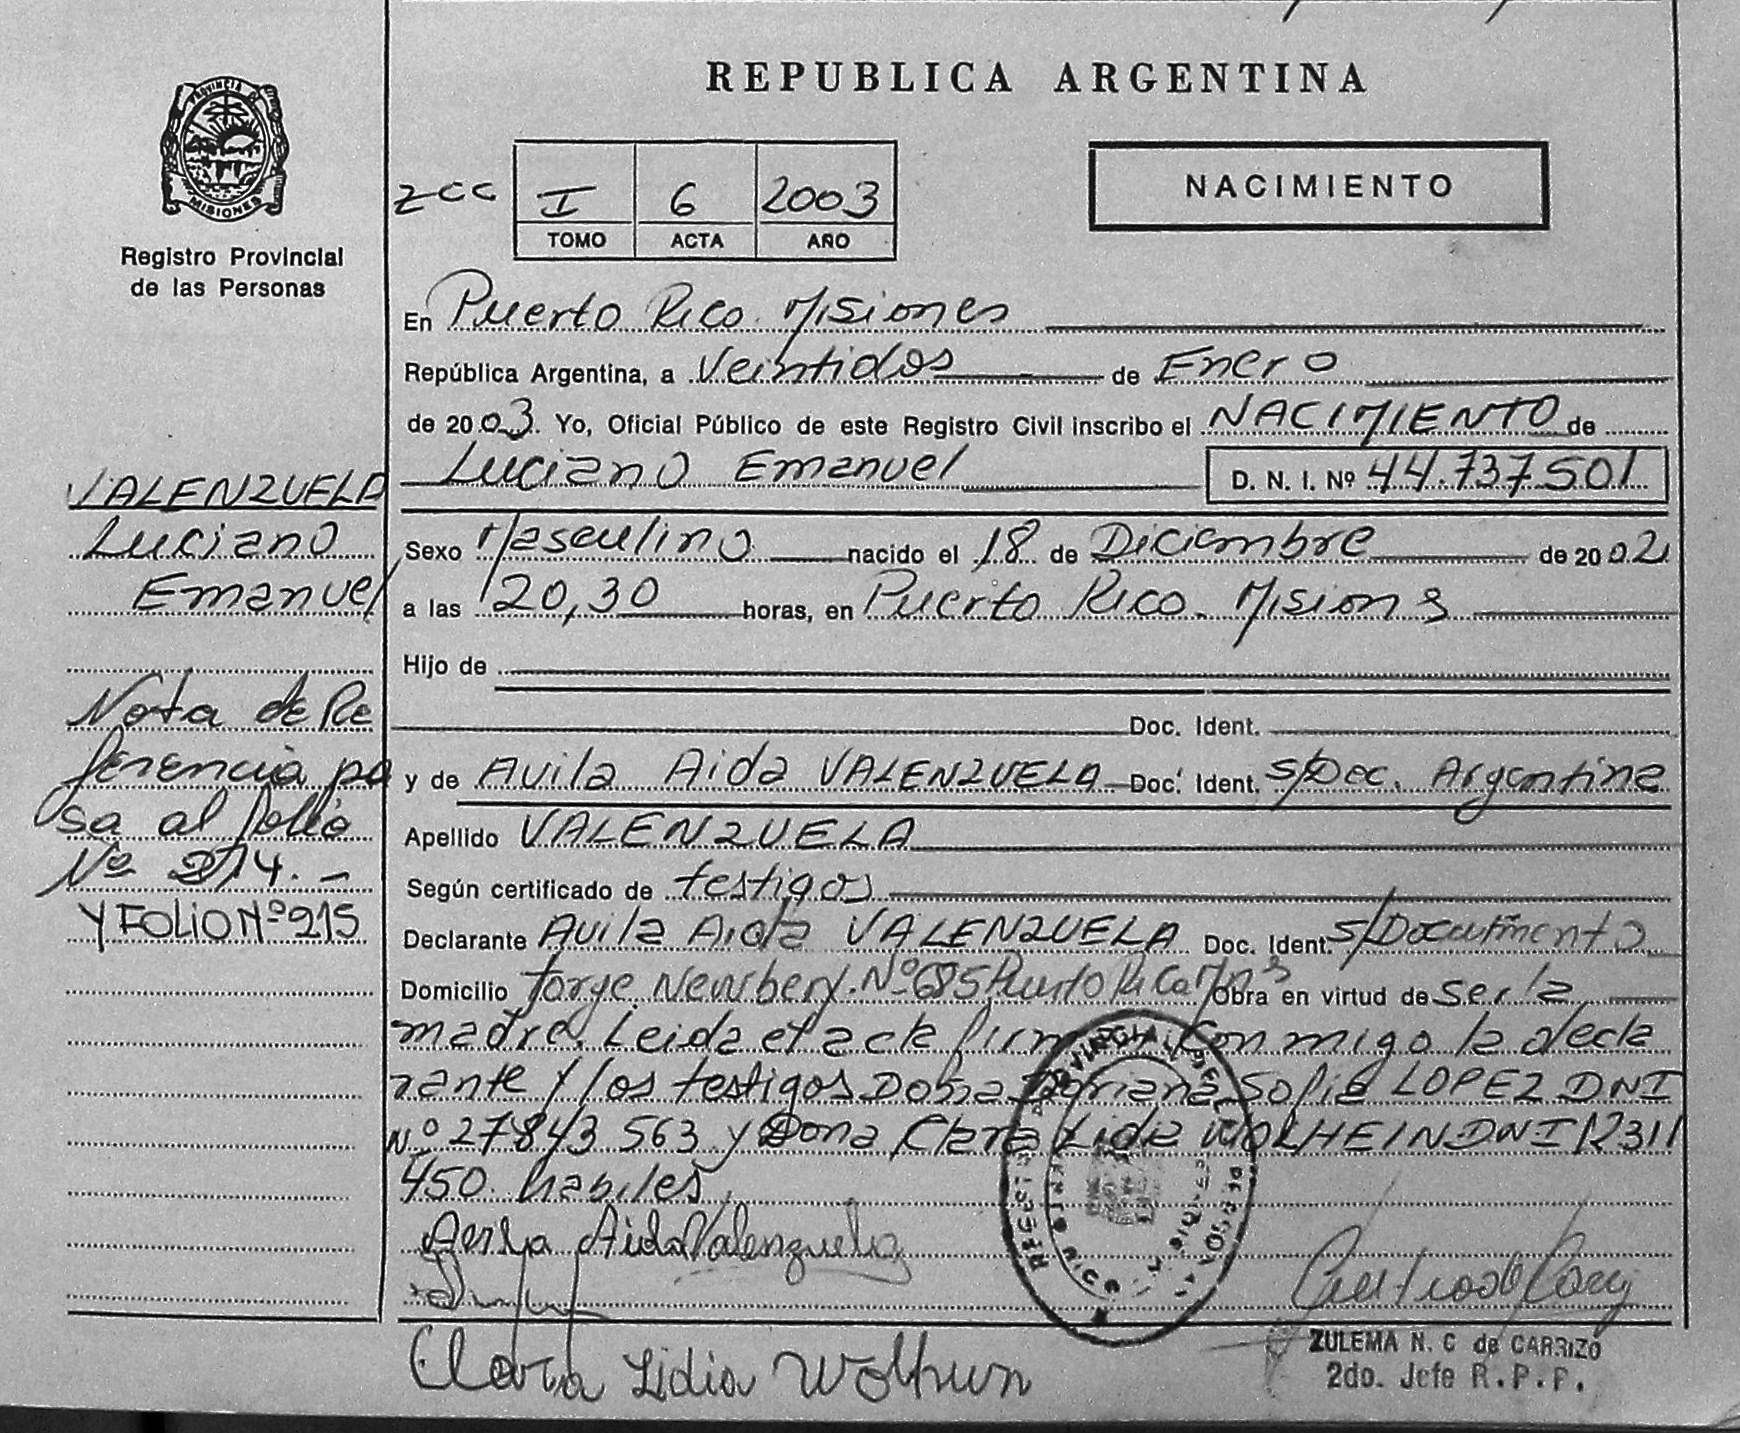 REPUBLICA ARGENTINA
PROVINCIA DE
MISIONES
Registro Provincial
de las Personas
ZCC I 6 2003
TOMO ACTA AÑO
NACIMIENTO
En Puerto Rico. Misiones
República Argentina, a Veintidos de Enero
de 2003. Yo, Oficial Público de este Registro Civil inscribo el NACIMIENTO de
Luciano Emanuel D. N. I. Nº 44.737501
Sexo Masculino nacido el 18 de Diciembre de 2002
a las 20,30 horas, en Puerto Rico. Misions
Hijo de
Doc. Ident.
y de Avila Aida VALENZUELA Doc. Ident. s/Doc. Argentina
Apellido VALENZUELA
Según certificado de testigos
Declarante Avila Aida VALENZUELA Doc. Ident. s/Documento
Domicilio Jorge Newbery. Nº 685 Puerto Rico Mns Obra en virtud de ser la
madre. Leida el acta firman conmigo la decla
rante y los testigos Doña Adriana Sofia LOPEZ DNI
Nº 27843 563 y Dona Clara Lidia WOLHEIN DNI 12311
450 habiles
Avila Aida Valenzuela
Clara Lidia
ZULEMA N. C de CARRIZO
2do. Jefe R.P.P.
VALENZUELA
Luciano
Emanuel
Nota de Re
ferencia pa
sa al folio
Nº 214. -
Y FOLIO Nº 215